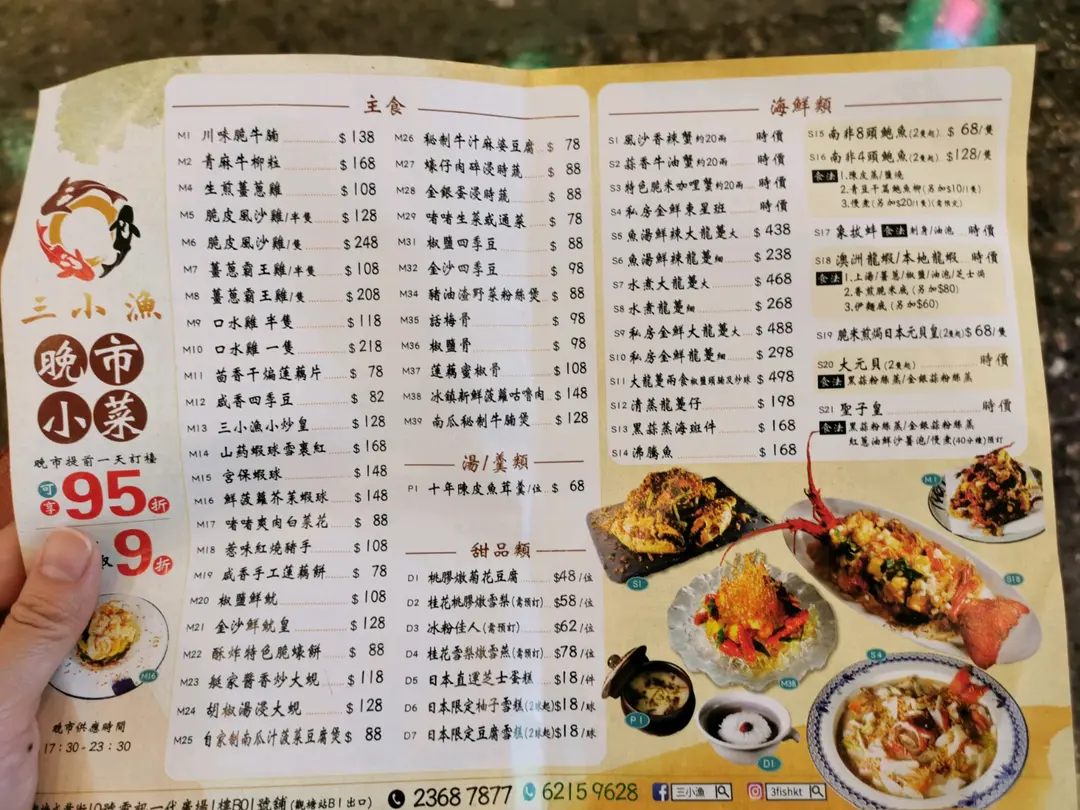 三小漁
晚市
小菜
晚市提前一天訂檯
可享95折
9折
M16
晚市供應時間
17:30-23:30
主食
M1 川味脆牛腩 $138
M2 青麻牛柳粒 $168
M4 生煎薑蔥雞 $108
M5 脆皮風沙雞/半隻 $128
M6 脆皮風沙雞/隻 $248
M7 薑蔥霸王雞/半隻 $108
M8 薑蔥霸王雞/隻 $208
M9 口水雞 半隻 $118
M10 口水雞 一隻 $218
M11 茴香干煸蓮藕片 $78
M12 咸香四季豆 $82
M13 三小漁小炒皇 $128
M14 山药蝦球雪裏紅 $168
M15 宮保蝦球 $148
M16 鮮菠蘿芥茉蝦球 $148
M17 啫啫爽肉白菜花 $88
M18 惹味紅燒豬手 $108
M19 咸香手工蓮藕餅 $78
M20 椒鹽鮮魷 $108
M21 金沙鮮魷皇 $128
M22 酥炸特色脆蠔餅 $88
M23 艇家醬香炒大蜆 $118
M24 胡椒湯浸大蜆 $128
M25 自家制南瓜汁菠菜豆腐煲 $88
M26 秘制牛汁麻婆豆腐 $78
M27 蠔仔肉碎浸時蔬 $88
M28 金銀蛋浸時蔬 $88
M29 啫啫生菜或通菜 $78
M31 椒鹽四季豆 $88
M32 金沙四季豆 $98
M34 豬油渣野菜粉絲煲 $88
M35 話梅骨 $98
M36 椒鹽骨 $98
M37 蓮藕蜜椒骨 $108
M38 冰鎮新鮮菠蘿咕嚕肉 $148
M39 南瓜秘制牛腩煲 $128
湯/羹類
P1 十年陳皮魚茸羹/位 $68
甜品類
D1 桃膠燉菊花豆腐 $48/位
D2 桂花桃膠燉雪梨(需預訂) $58/位
D3 冰粉佳人(需預訂) $62/位
D4 桂花雪梨燉雪燕(需預訂) $78/位
D5 日本直運芝士蛋糕 $18/件
D6 日本限定柚子雪糕(2球起) $18/球
D7 日本限定豆腐雪糕(2球起) $18/球
海鮮類
S1 風沙香辣蟹約20兩 時價
S2 蒜香牛油蟹約20兩 時價
S3 特色脆米咖哩蟹約20兩 時價
S4 私房金鮮東星班 時價
S5 魚湯鮮辣大龍躉大 $438
S6 魚湯鮮辣龍躉細 $238
S7 水煮大龍躉大 $468
S8 水煮龍躉細 $268
S9 私房金鮮大龍躉大 $488
S10 私房金鮮龍躉細 $298
S11 大龍躉兩食椒鹽頭腩及炒球 $498
S12 清蒸龍躉仔 $198
S13 黑蒜蒸海斑件 $168
S14 沸騰魚 $168
S15 南非8頭鮑魚(2隻起) $68/隻
S16 南非4頭鮑魚(2隻起) $128/隻
食法 1.陳皮蒸/鹽燒
2.青豆干蔥鮑魚柳(另加$10/1隻)
3.慢煮(另加$20/1隻)(需預定)
S17 象拔蚌 食法 刺身/油泡 時價
S18 澳洲龍蝦/本地龍蝦 時價
食法 1.上湯/薑蔥/椒鹽/油泡/芝士焗
2.香煎脆米底(另加$80)
3.伊麵底(另加$60)
S19 脆米煎焗日本元貝皇(2隻起) $68/隻
S20 大元貝(2隻起) 時價
食法 黑蒜粉絲蒸/金銀蒜粉絲蒸
S21 聖子皇 時價
食法 黑蒜粉絲蒸/金銀蒜粉絲蒸
紅蔥油鮮沙薑泡/慢煮(40分鐘)預訂
S1
M1
S18
M38
P1
D1
S4
街10號雲訊一代廣場1樓B01號鋪(觀塘站B1出口) 2368 7877 6215 9628 三小漁 3fishkt